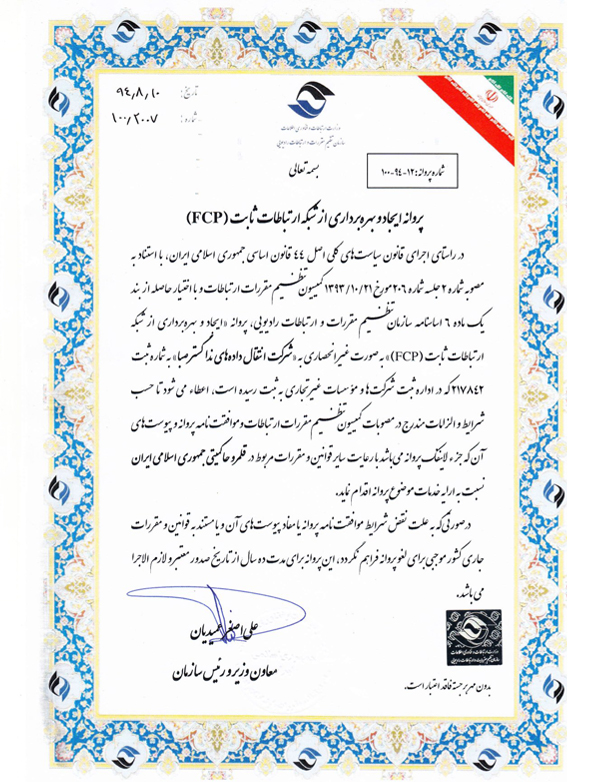 تاریخ: ۹۴٫۸٫۱۰
شماره: ۱۰۰٫۲۰۰۷
وزارت ارتباطات و فناوری اطلاعات
سازمان تنظیم مقررات و ارتباطات رادیویی
بسمه تعالی
شماره پروانه: ۱۲-۹۴-۱۰۰
پروانه ایجاد و بهره برداری از شبکه ارتباطات ثابت (FCP)
در راستای اجرای قانون سیاست های کلی اصل ۴۴ قانون اساسی جمهوری اسلامی ایران، با استناد به
مصوبه شماره ۲ جلسه شماره ۲۰۶ مورخ ۱۳۹۳/۱۰/۲۱ کمیسیون تنظیم مقررات ارتباطات و با اختیار حاصله از بند
یک ماده ۶ اساسنامه سازمان تنظیم مقررات و ارتباطات رادیویی، پروانه «ایجاد و بهره برداری از شبکه
ارتباطات ثابت (FCP)» به صورت غیر انحصاری به «شرکت انتقال داده های ندا گستر صبا» به شماره ثبت
۲۱۷۸۴۲ که در اداره ثبت شرکت ها و مؤسسات غیر تجاری به ثبت رسیده است، اعطاء می شود تا حسب
شرایط و الزامات مندرج در مصوبات کمیسیون تنظیم مقررات ارتباطات و موافقت نامه پروانه و پیوست های
آن که جزء لاینفک پروانه می باشد با رعایت سایر قوانین و مقررات مربوط در قلمرو حاکمیتی جمهوری اسلامی ایران
نسبت به ارایه خدمات موضوع پروانه اقدام نماید.
در صورتی که به علت نقض شرایط موافقت نامه پروانه یا مفاد پیوست های آن و یا مستند به قوانین و مقررات
جاری کشور موجبی برای لغو پروانه فراهم نگردد، این پروانه برای مدت ده سال از تاریخ صدور معتبر و لازم الاجرا
می باشد.
علی اصغر عمیدیان
معاون وزیر و رئیس سازمان
وزارت ارتباطات و فناوری اطلاعات
سازمان تنظیم مقررات و ارتباطات رادیویی
بدون مهر برجسته فاقد اعتبار است.